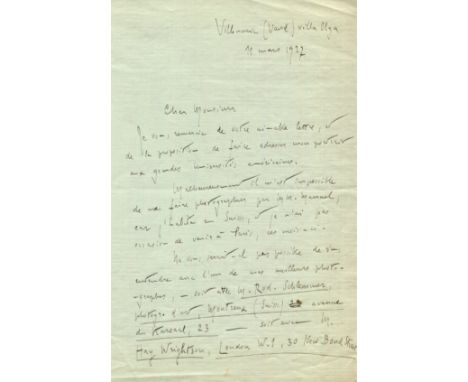 Villeneuve (Vaud) villa Olga
11 mars 1927
Cher Monsieur
Je vous remercie de votre aimable lettre, et
de la proposition de faire adresser mon portrait
aux grandes universités américaines.
Malheureusement il m'est impossible
de me faire photographier par Mr. Manuel,
car j'habite en Suisse, et je n'ai pas
occasion de venir à Paris, ces mois-ci.
Ne vous serait-il pas possible de vous
entendre avec l'un de mes meilleurs photo-
graphes, – soit avec M. Rod. Schlemmer,
photogr. d'art, Montreux (Suisse) avenue
du Kursaal, 23 — soit avec M.
Hay Wrightson, London W.1, 30 New Bond Street